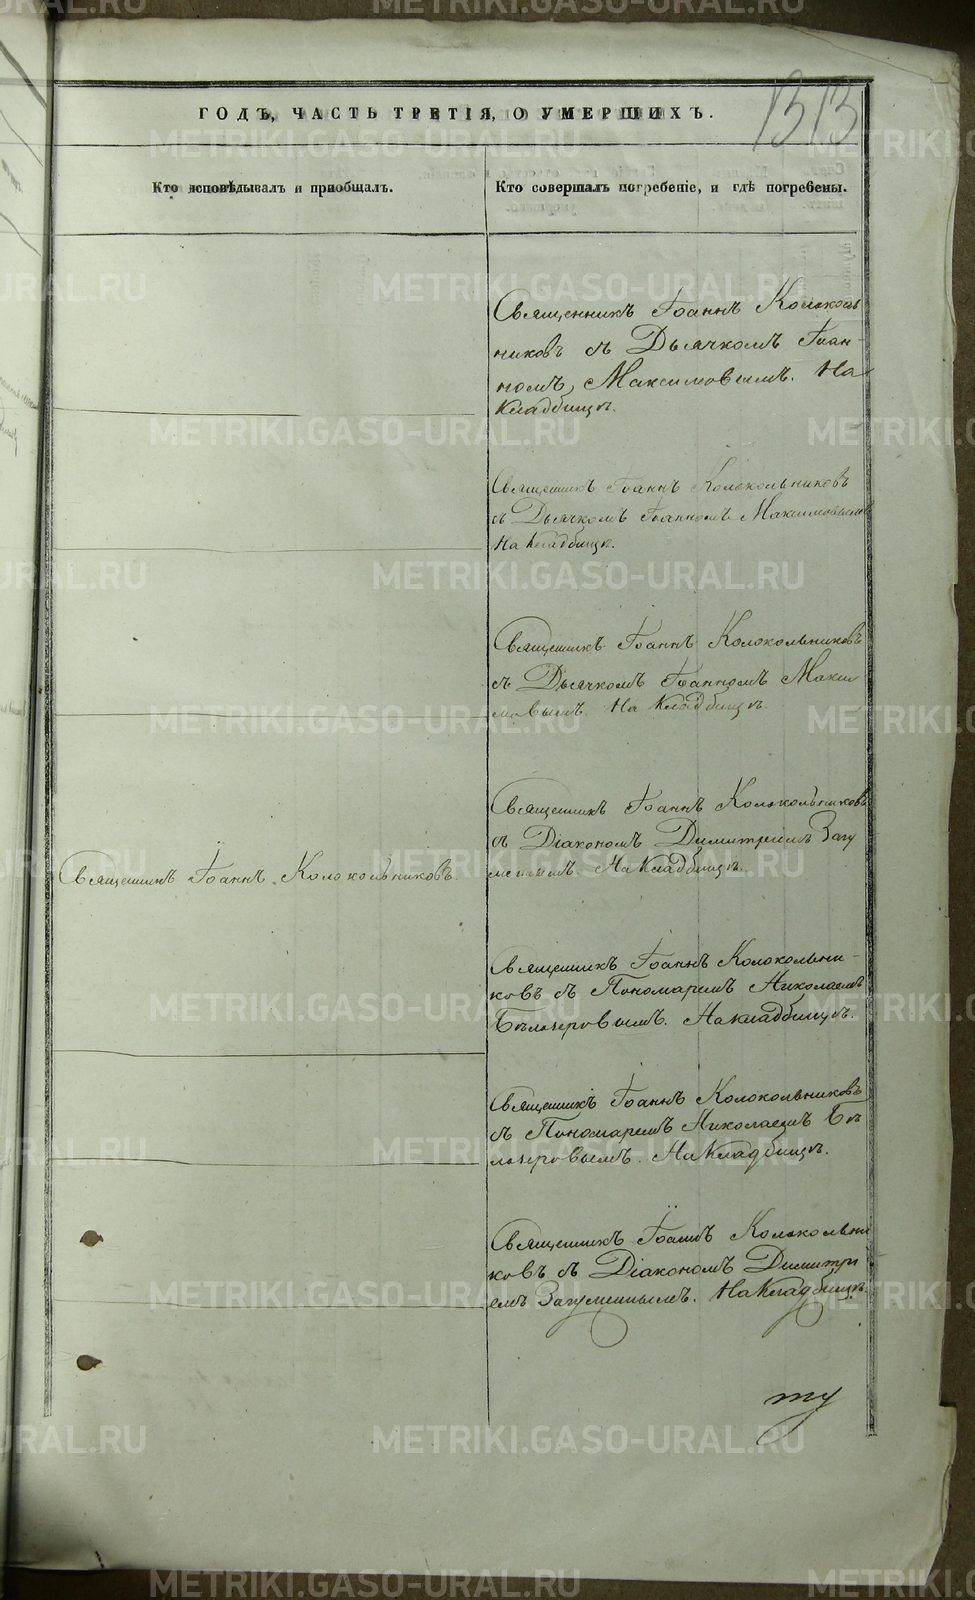 1313
ГОДЪ, ЧАСТЬ ТРЕТІЯ, О УМЕРШИХЪ.
Кто исповѣдывалъ и пріобщалъ.
Кто совершалъ погребеніе, и гдѣ погребены.
Священникъ Іоаннъ Колоколь
никовъ съ Дьячкомъ Іоан-
номъ Максимовымъ. На
Кладбищѣ.
Священникъ Іоаннъ Колокольниковъ
съ Дьячкомъ Іоанномъ Максимовымъ
На Кладбищѣ.
Священникъ Іоаннъ Колокольниковъ
съ Дьячкомъ Іоанномъ Макси
мовымъ. На Кладбищѣ.
Священникъ Іоаннъ Колокольниковъ
съ Діакономъ Димитріемъ Загу
меннымъ. На Кладбищѣ.
Священникъ Іоаннъ Колокольниковъ.
Священникъ Іоаннъ Колокольни-
ковъ съ Пономаремъ Николаемъ
Бѣлозеровымъ. На кладбищѣ.
Священникъ Іоаннъ Колокольниковъ
съ Пономаремъ Николаемъ Бѣ
лозеровымъ. На Кладбищѣ.
Священникъ Іоаннъ Колокольни
ковъ съ Діакономъ Димитрі
емъ Загуменнымъ. На Кладбищѣ.
METRIKI.GASO-URAL.RU